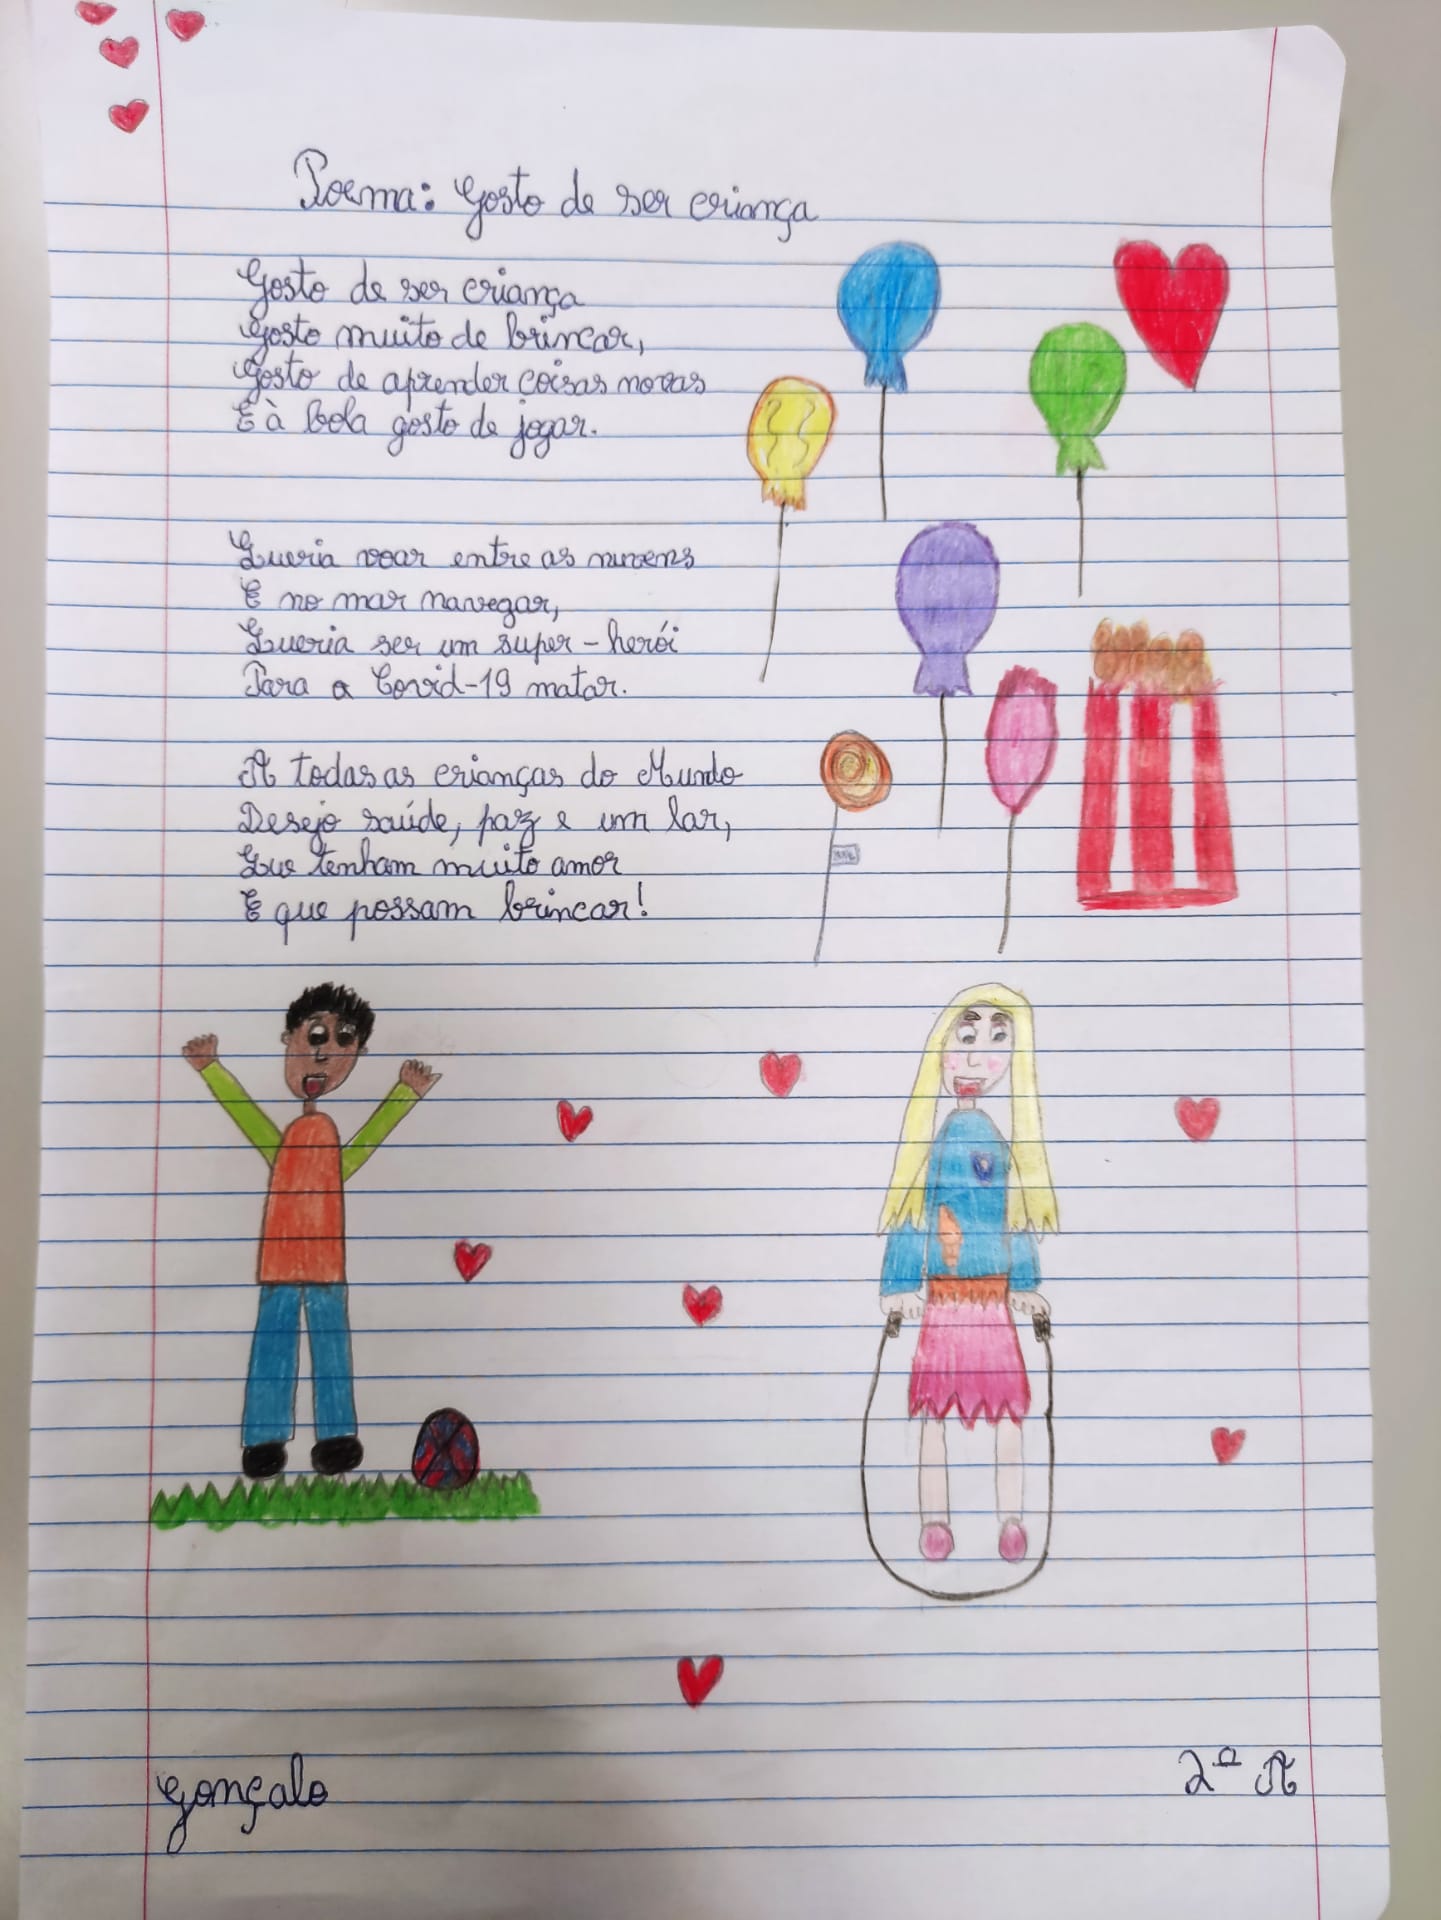 Poema: Gosto de ser criança
Gosto de ser criança
Gosto muito de brincar,
Gosto de aprender coisas novas
E à bola gosto de jogar.
Queria voar entre as nuvens
E no mar navegar,
Queria ser um super-herói
Para a Covid-19 matar.
A todas as crianças do Mundo
Desejo saúde, paz e um lar,
Que tenham muito amor
E que possam brincar!
Gonçalo
2º A